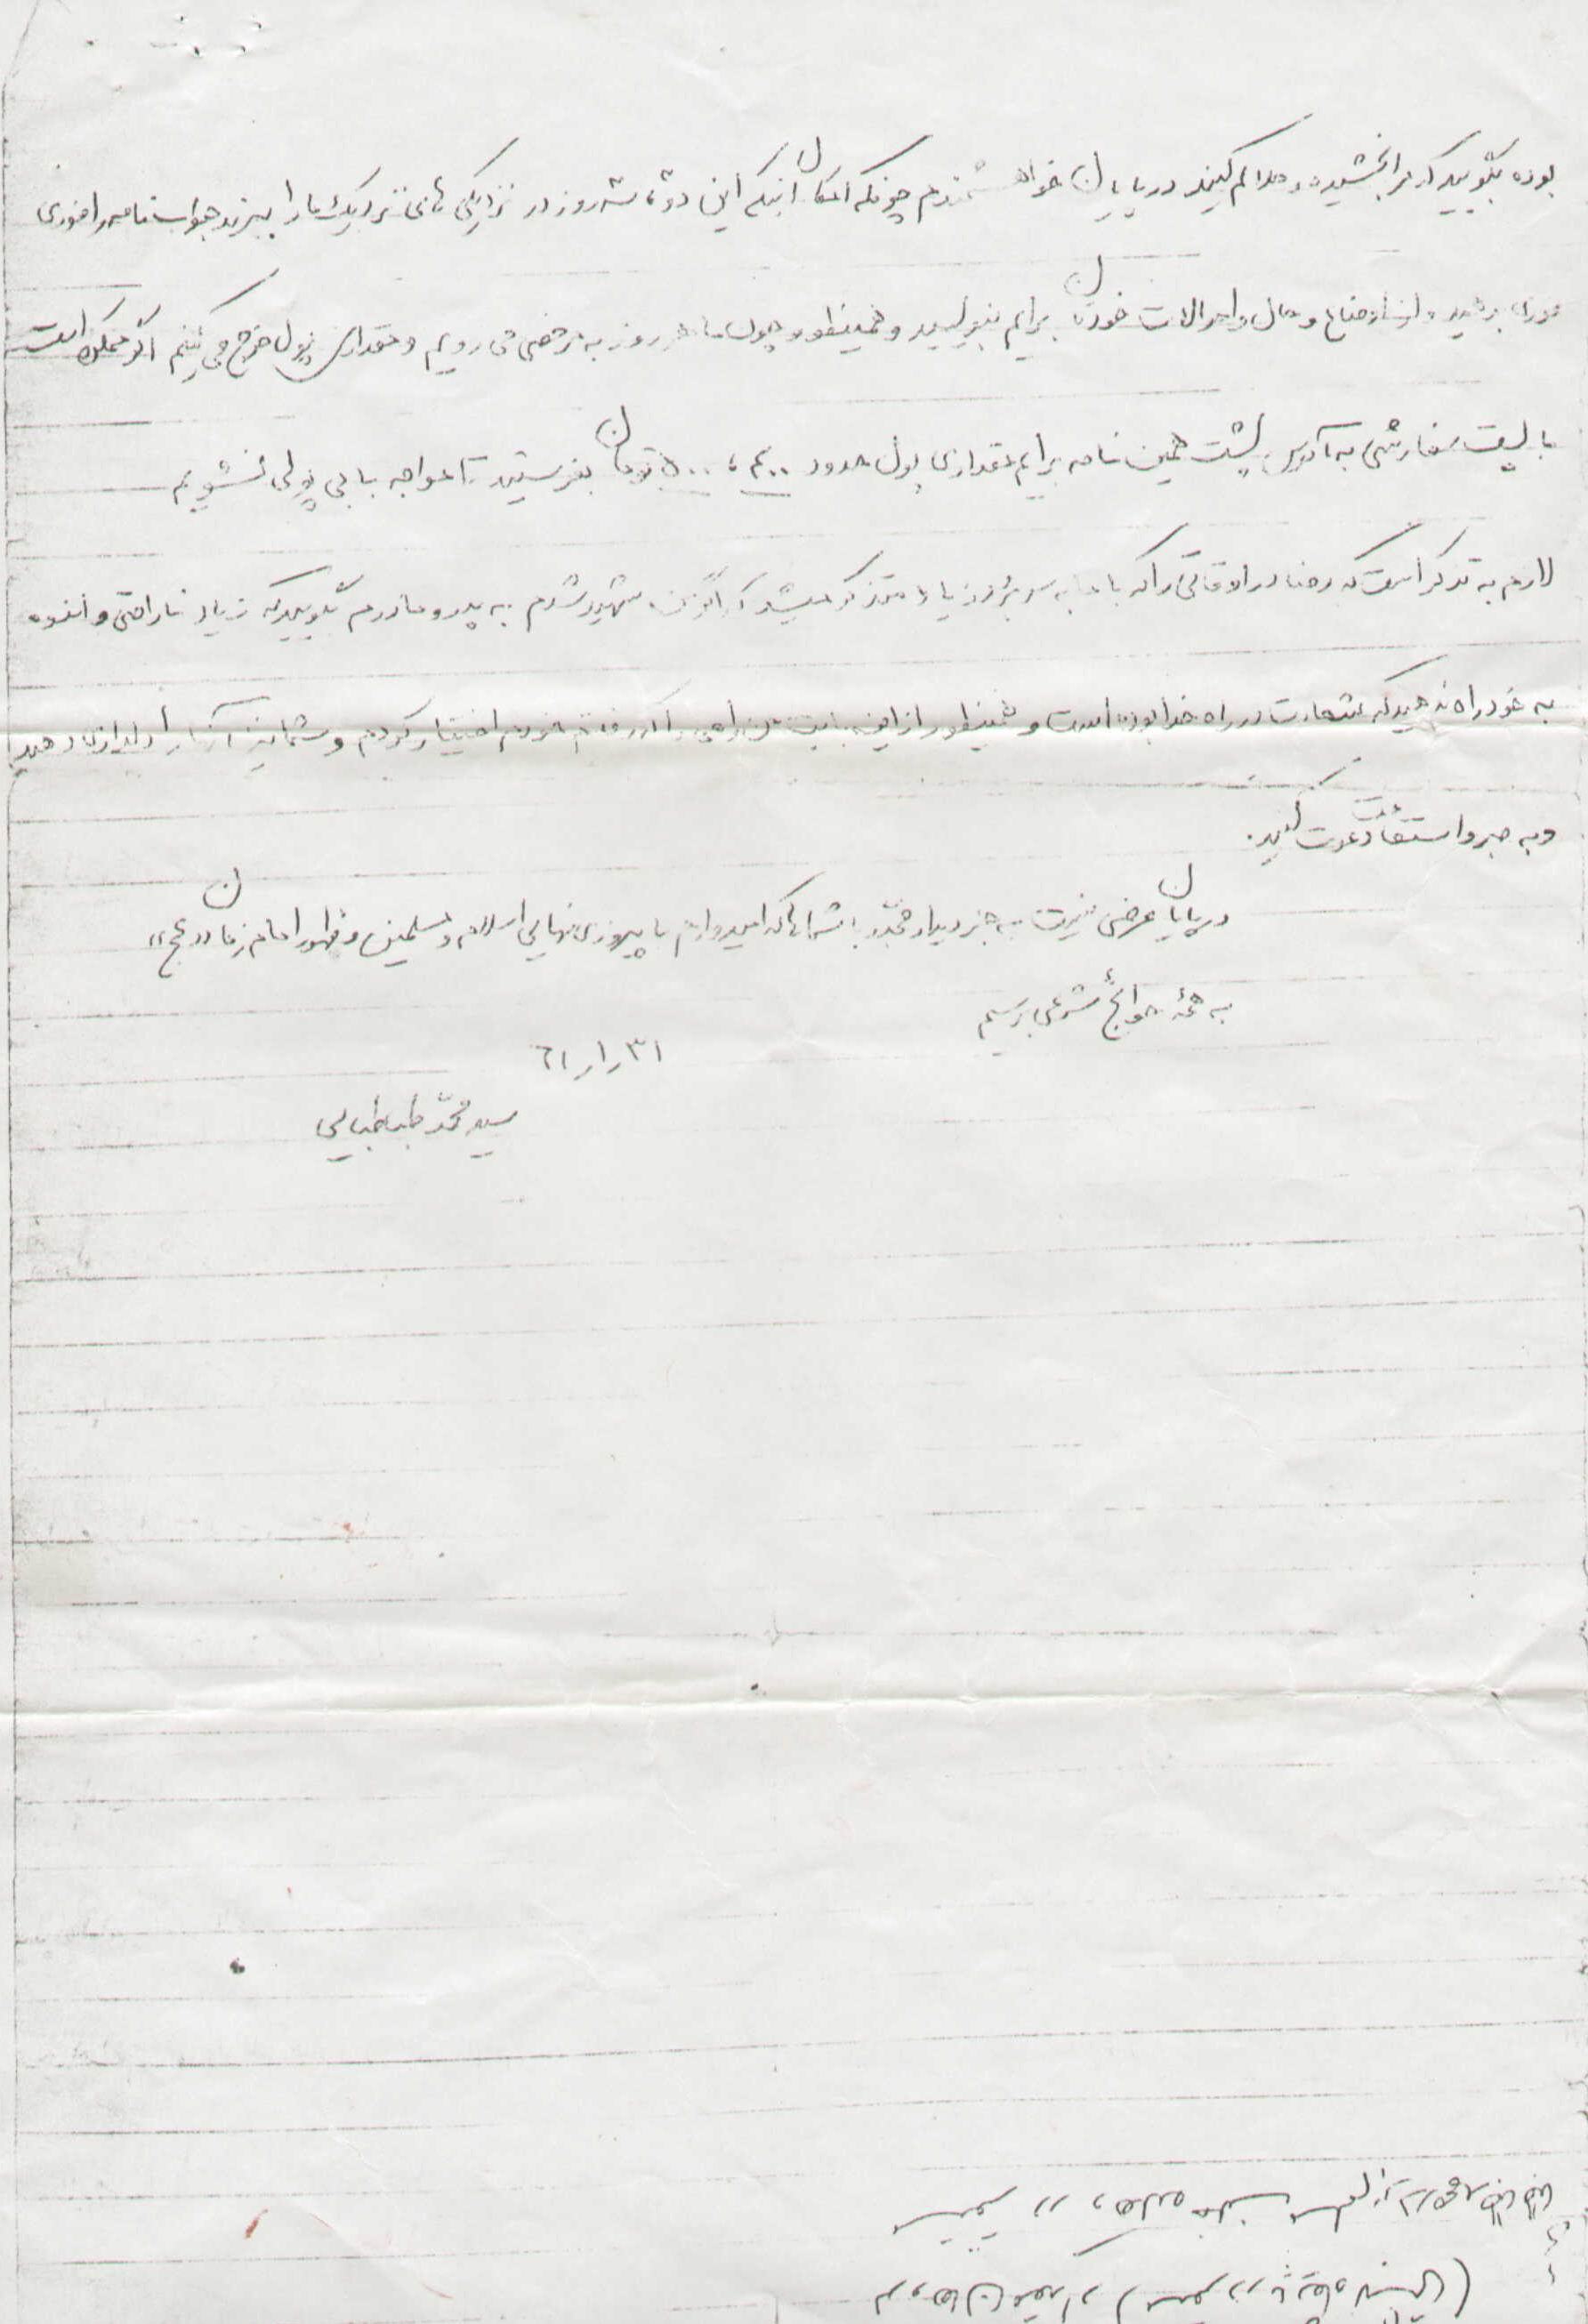 بوده بگوئید که مرا بخشیده و حلالم کنید در پایان خواهشمندم چونکه امکان اینکه این دو تا سه روز در نزدیکی های نزدیک ما را ببرند جواب نامه را فوری
فوری بدهید و از اوضاع و حال و احوالات خودتان برایم بنویسید و همینطور چون ما هر روز به مرخصی می رویم و مقداری پول خرج می کنیم اگر ممکن است
با پست سفارشی به آدرس پشت همین نامه برایم مقداری پول حدود ۴۰۰ تا ۵۰۰ تومان بفرستید تا مواجه با بی پولی نشویم
لازم به تذکر است که رضا در اوقاتی را که با ما به سر برد زیاد متذکر میشد که اگر من شهید شدم به پدر و مادرم بگوئید که زیاد ناراحتی و اندوه
به خود راه ندهید که شهادت در راه خدا بوده است و همینطور از این بابت من راهی را که رفتم خودم اختیار کردم و شما نیز آنها را دلداری دهید
و به صبر و استقامت دعوت کنید.
در پایان عرضی نیست به جز دیدار مجدد با شماها که امیدوارم با پیروزی نهایی اسلام و مسلمین و ظهور امام زمان «عج»
به همهٔ حوائج شرعی برسیم
۳۱ ر۱ ر ۶۱
سید محمد طباطبایی